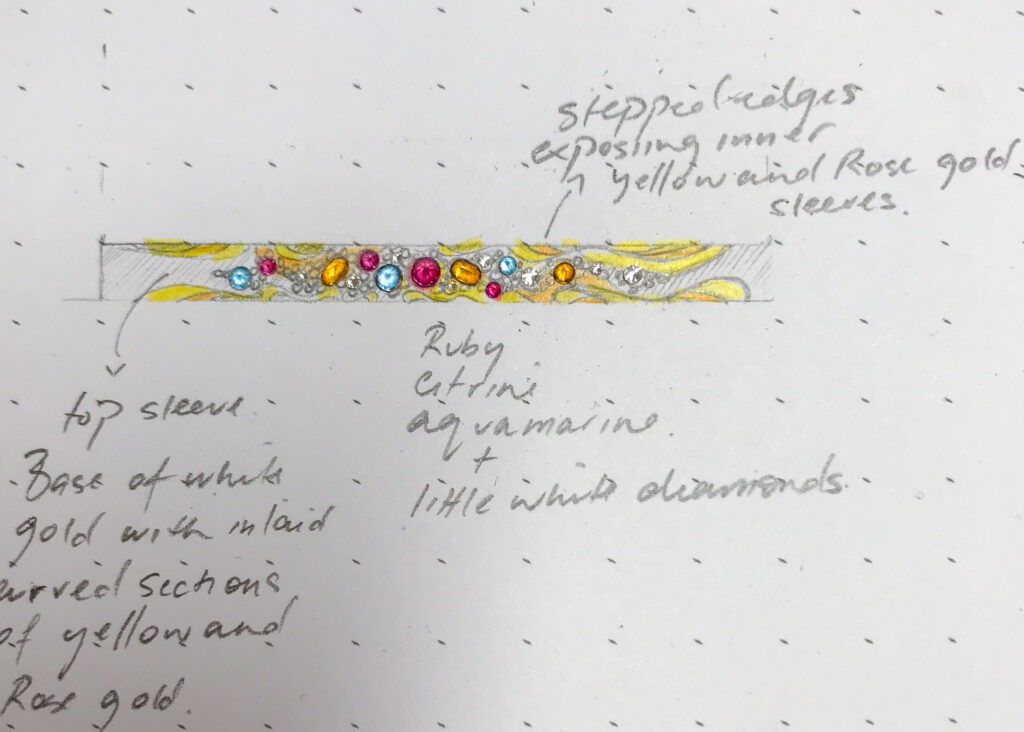 stepped edges
exposing inner
yellow and Rose gold
sleeves.
Ruby
Citrine
aquamarine.
+
little white diamonds.
top sleeve.
Base of white
gold with inlaid
curved sections
of yellow and
Rose gold.